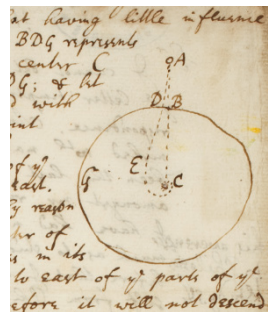 at having little influence
BDG represents
center C
DG; & let
A
d with
D B
int
of yᵉ
E
East.
G
C
By reason
ter of
s in its
to east of yᵉ parts of yᵉ
efore it will not descend